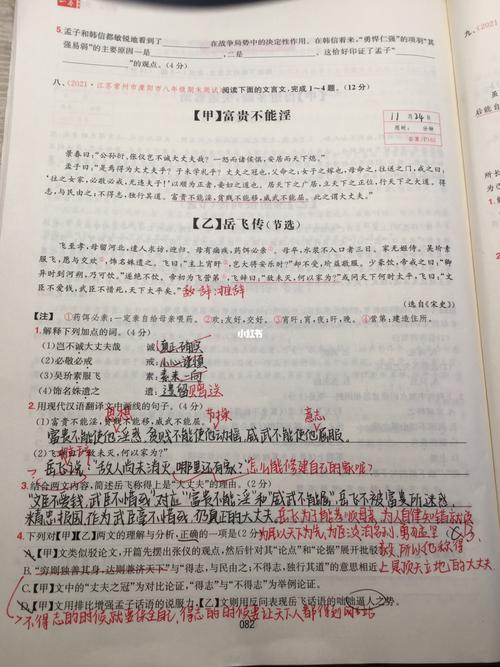 5.孟子和韩信都敏锐地看到了____在战争局势中的决定性作用。在韩信看来,"勇悍仁强"的项羽"其
强易弱"的主要原因一是____,二是____。这恰好印证了孟子"
____"的观点。(4分)
八、(2021·江苏常州市溧阳市八年级期末测试)阅读下面的文言文,完成1~4题。(12分)
【甲】富贵不能淫
11月24日
用时: 分钟
景春曰:"公孙衍、张仪岂不诚大丈夫哉?一怒而诸侯惧,安居而天下熄。"
孟子曰:"是焉得为大丈夫乎?子未学礼乎?丈夫之冠也,父命之;女子之嫁也,母命之,往送之门,戒之曰:
'往之女家,必敬必戒,无违夫子!'以顺为正者,妾妇之道也。居天下之广居,立天下之正位,行天下之大道。得
志,与民由之;不得志,独行其道。富贵不能淫,贫贱不能移,威武不能屈。此之谓大丈夫。"
【乙】岳飞传(节选)
飞至孝,母留河北,遣人求访,迎归。母有痼疾,药饵必亲①。母卒,水浆不入口者三日。家无姬侍。吴玠素
服飞,愿与交欢②,饰名姝遗之。飞曰:"主上宵旰③,岂大将安乐时?"却不受,玠益敬服。少豪饮,帝戒之曰:"卿
异时到河朔,乃可饮。"遂绝不饮。帝初为飞营第④,飞辞曰:"敌未灭,何以家为?"或问天下何时太平,飞曰:"文
臣不爱钱,武臣不惜死,天下太平矣。"
辞:推辞
(选自《宋史》)
【注】①药饵必亲:一定亲自给母亲喂药。②欢:友好。③宵旰:宵,夜;旰,晚。④营第:建造住所。
小红书
1.解释下列加点的词。(4分)
(1)岂不诚大丈夫哉 诚:真正,确实
(2)必敬必戒 戒:小心谨慎
(3)吴玠素服飞 素:素来,一向
(4)饰名姝遗之 遗:赠送
2.用现代汉语翻译文中画线的句子。(4分)
(1)富贵不能淫,贫贱不能移,威武不能屈。
节操
意志
富贵不能使他淫惑,贫贱不能使他动摇,威武不能使他屈服。
(2)飞辞曰:"敌未灭,何以家为?"
推辞
岳飞说:"敌人尚未消灭,哪里还有家?怎么能修建自己的家呢?
3.结合两文内容,简述岳飞称得上是"大丈夫"的理由。(2分)
"文臣不要钱,武臣不惜死"对应"富贵不能淫"和"威武不能屈",岳飞不被富贵所迷惑
精忠报国,作为武臣毫不惜死,乃真正的大丈夫。
4.下列对【甲】【乙】两文的理解与分析,正确的一项是(2分)
A.【甲】文类似驳论文,开篇先摆出张仪的观点,然后针对其"论点"和"论据"展开批驳
B."穷则独善其身,达则兼济天下"与"得志,与民由之;不得志,独行其道"的意思相近
C.【甲】文中的"丈夫之冠"为对比论证,"得志"与"不得志"为举例论证。
D.【甲】文用排比增强孟子话语的说服力,【乙】文则用反问表现岳飞话语的咄咄逼人之势。
不得志的时候就要保全自己,得志的时候要让天下人都得到好处
082